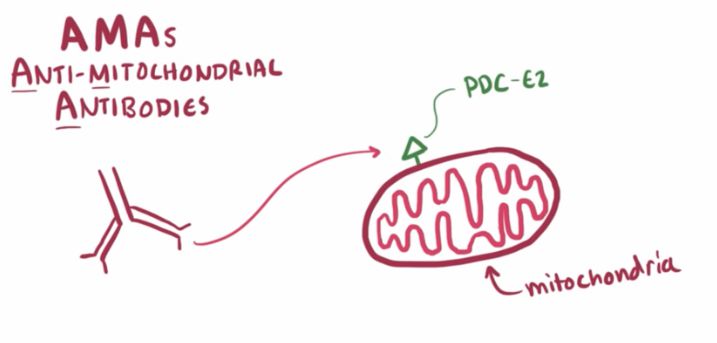 AMAs
ANTI-MITOCHONDRIAL
ANTIBODIES
PDC-E2
mitochondria